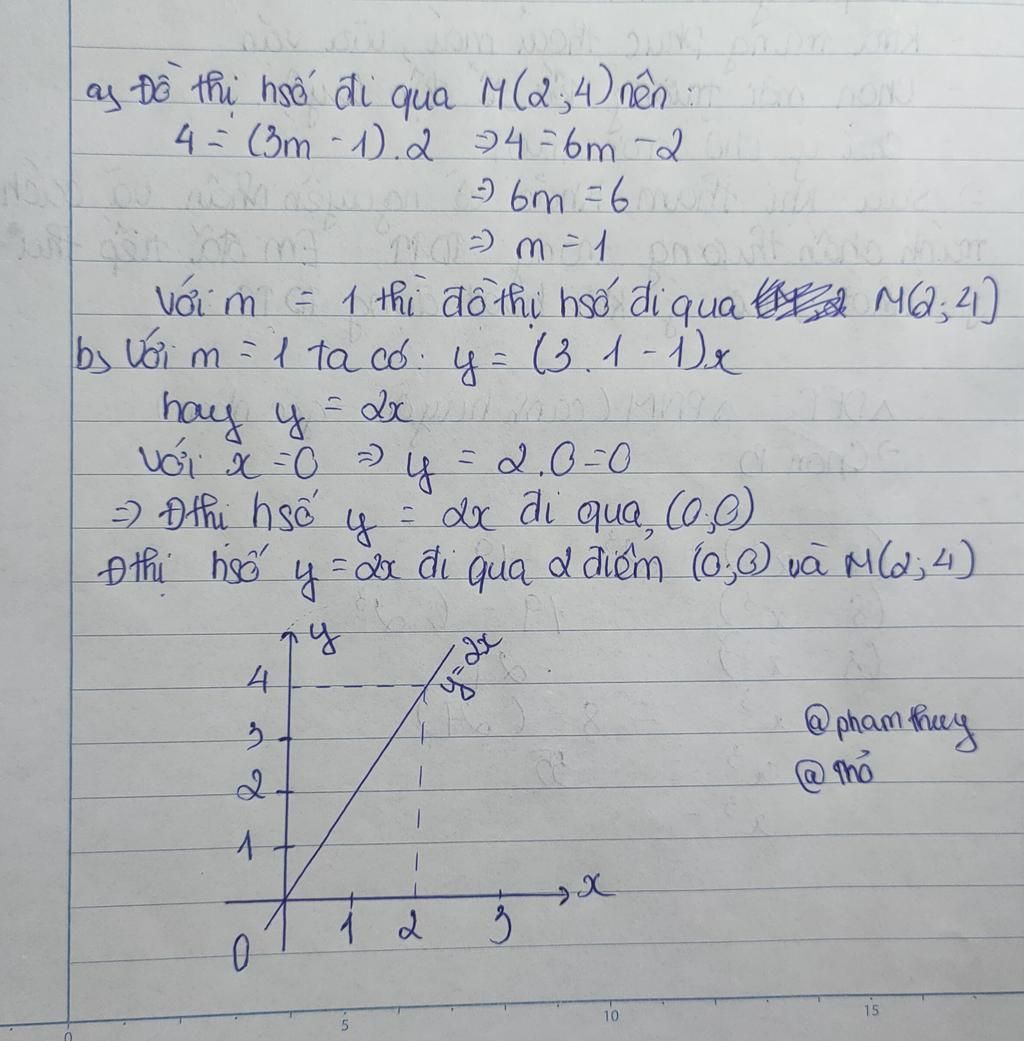 a, Đồ thị hsố đi qua M(2;4) nên:
4 = (3m - 1).2 => 4 = 6m - 2
=> 6m = 6
=> m = 1
Với m = 1 thì đồ thị hsố đi qua M(2;4)
b, Với m = 1 ta có: y = (3.1 - 1)x
hay y = 2x
Với x = 0 => y = 2.0 = 0
=> Đthị hsố y = 2x đi qua (0;0)
Đthị hsố y = 2x đi qua 2 điểm (0;0) và M(2;4)
y
y = 2x
4
3
2
1
x
0 1 2 3
@phamthuy
@thỏ
0 5 10 15